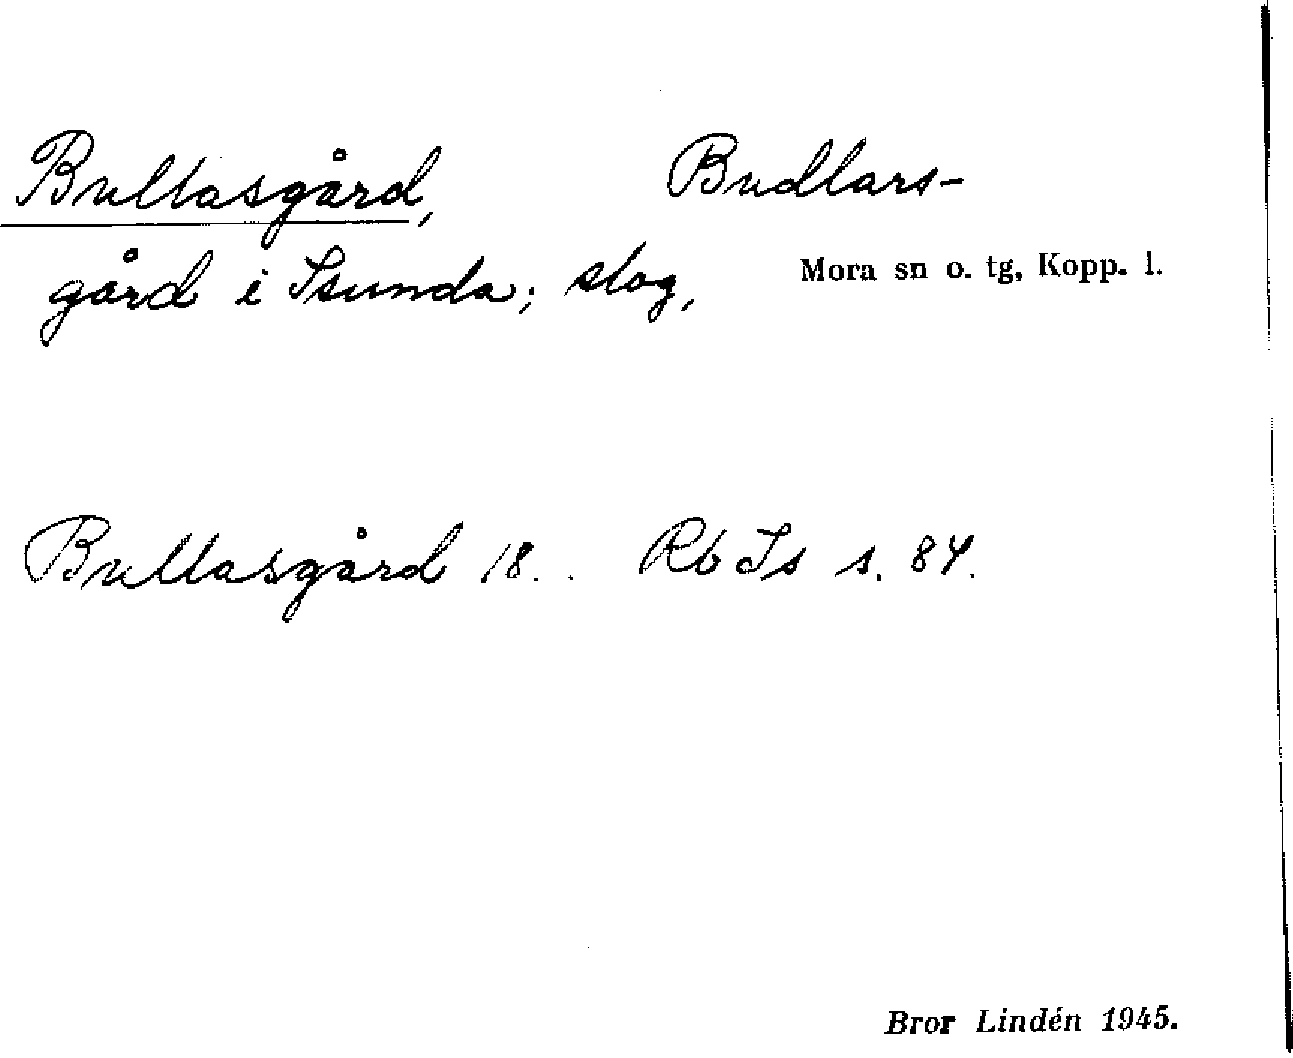 Bullasgård, Budlars-
gård i Isunda; slog, Mora sn o. tg, Kopp. l.
Bullasgård 18. . Rb Is s. 84.
Bror Lindén 1945.